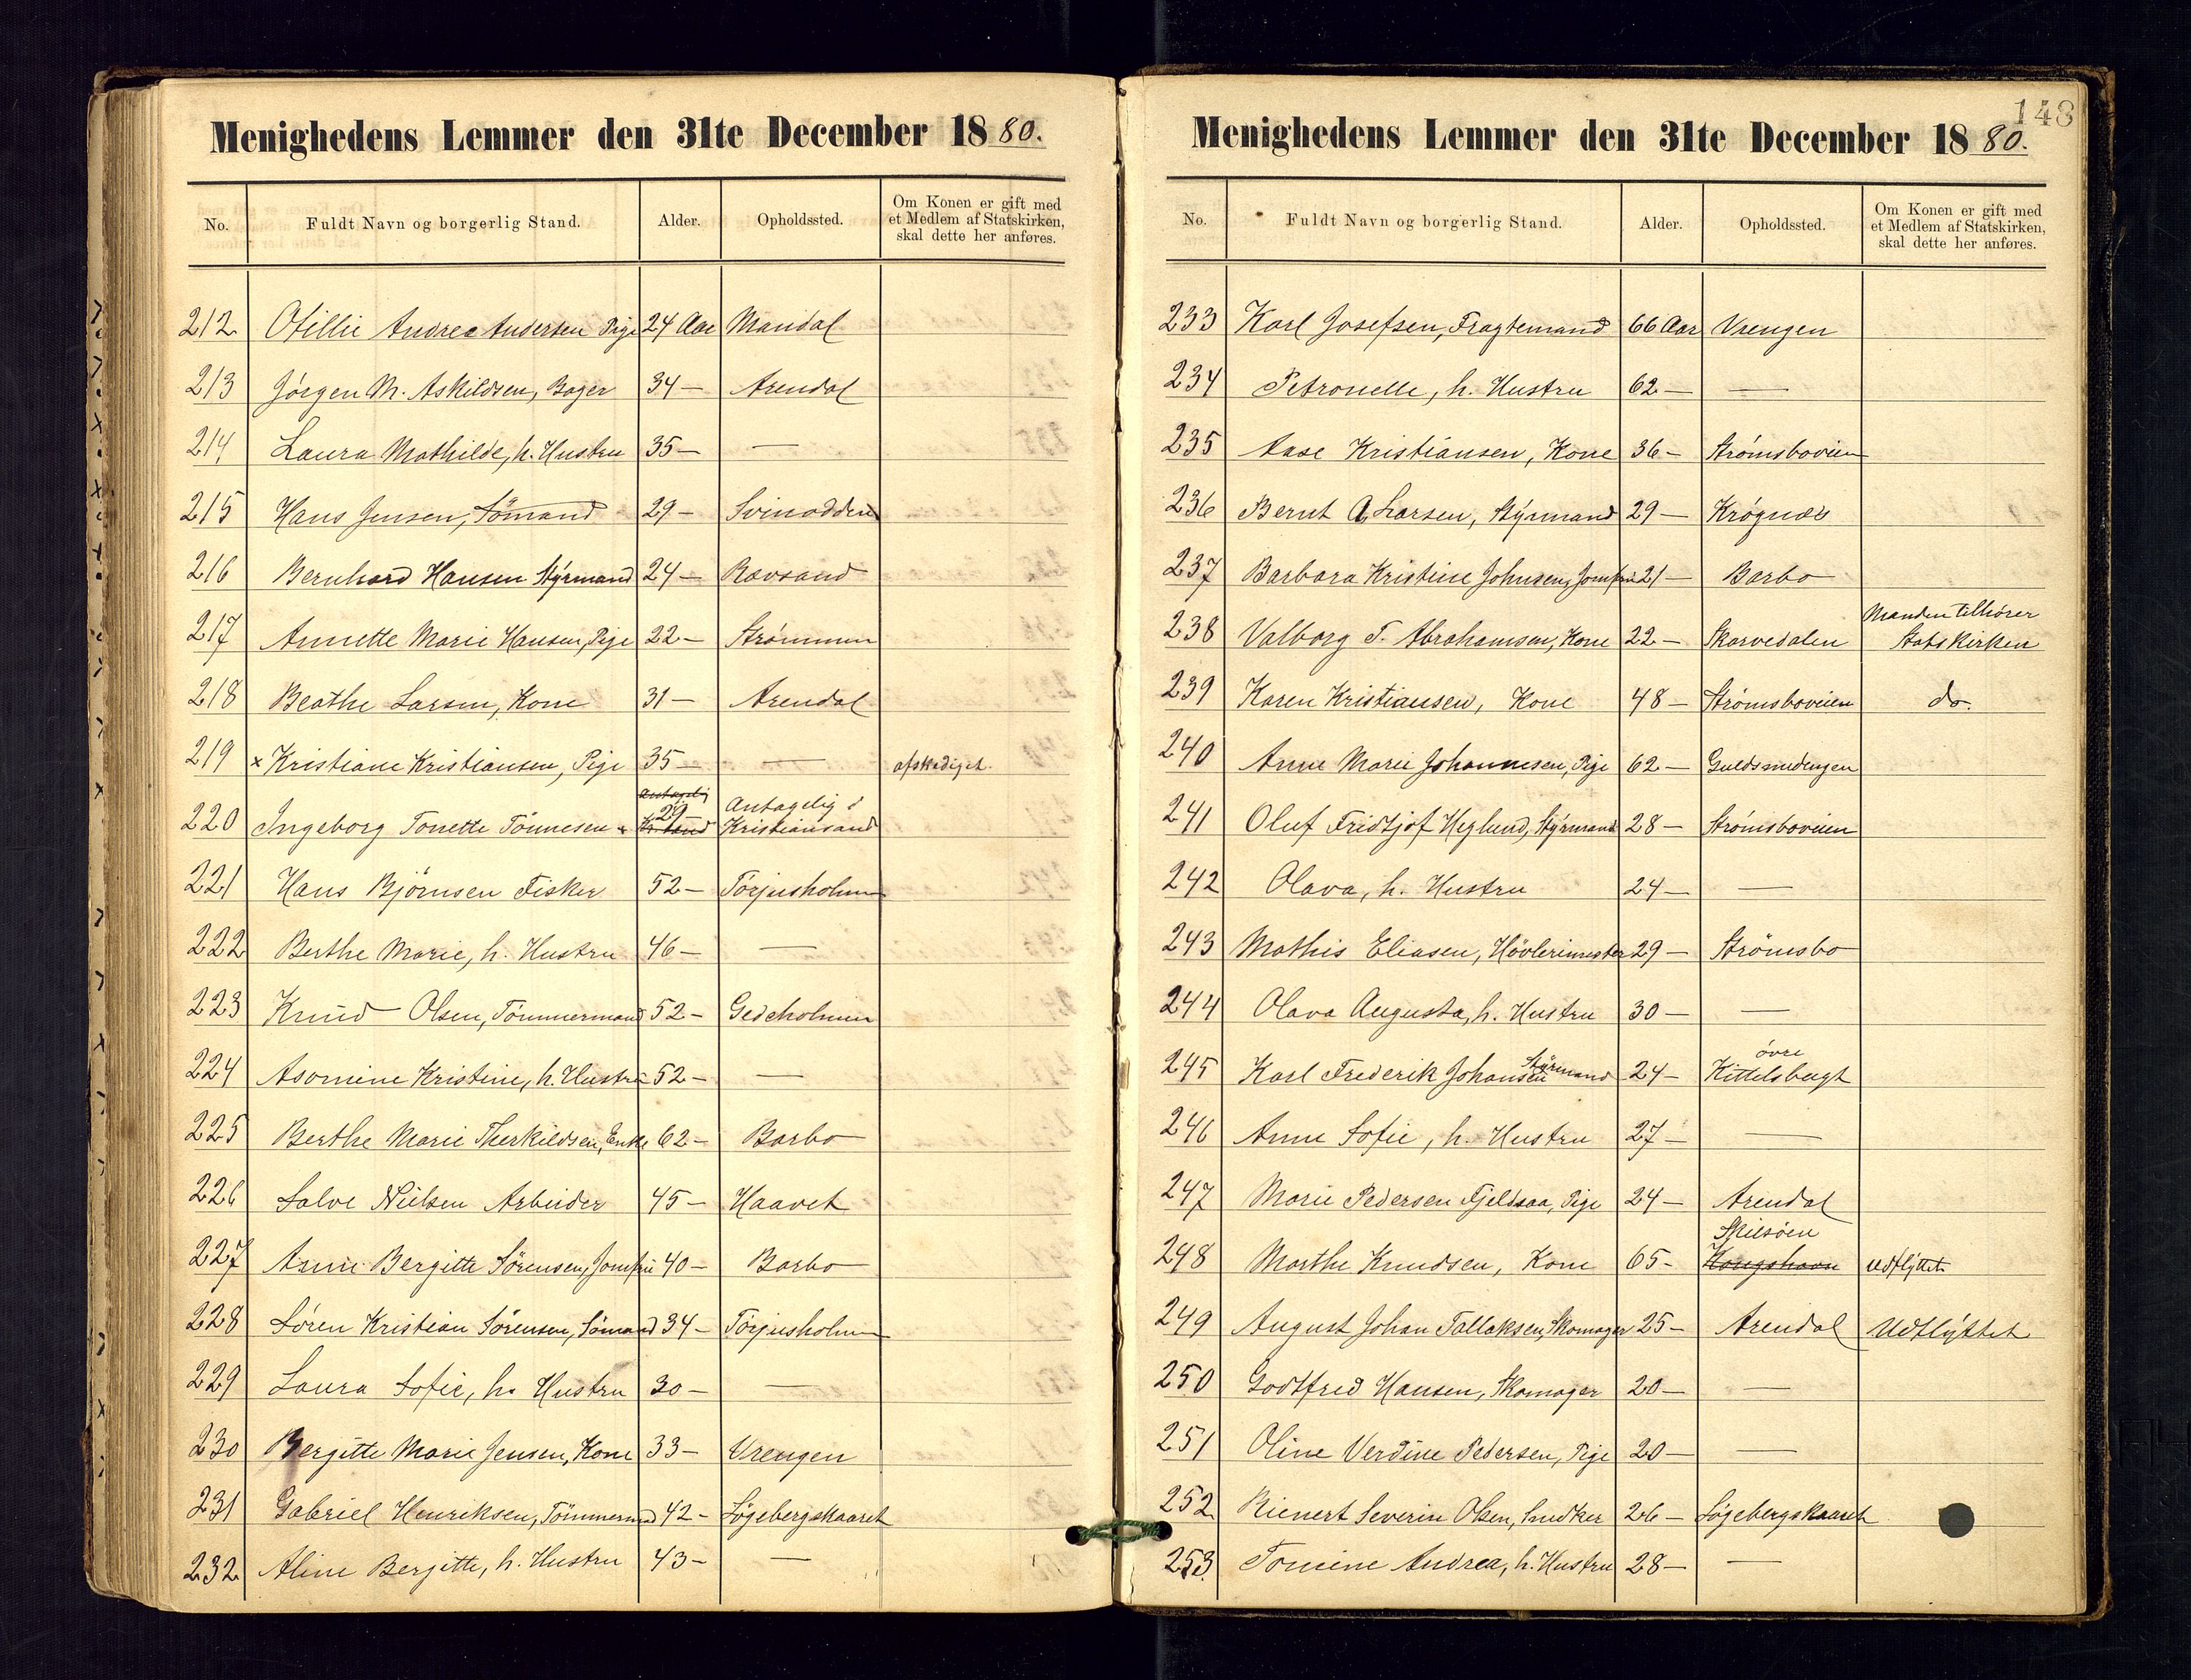 Menighedens Lemmer den 31te December 1880.
No. Fuldt Navn og borgerlig Stand. Alder. Opholdssted. Om Konen er gift med et Medlem af Statskirken, skal dette her anføres.
212 Otillie Andrea Andersen Pige 24 Aar Mandal
213 Jörgen M. Askildsen, Bager 34 — Arendal
214 Laura Mathilde, h. Hustru 35 — —
215 Hans Jensen, Sömand 29 — Svinodden
216 Bernhard Hansen Styrmand 24 — Rævsand
217 Annette Marie Hansen, Pige 22 — Strømmen
218 Beathe Larsen, Kone 31 — Arendal
219 x Kristiane Kristiansen, Pige 35 — — afskediget
220 Ingeborg Tonette Tönnesen 29 Antagelig i Kristiansand
221 Hans Björnsen Fisker 52 — Törjusholm
222 Berthe Marie, h. Hustru 46 — —
223 Knud Olsen, Tömmermand 52 — Gedeholmen
224 Asomine Kristine, h. Hustru 52 — —
225 Berthe Marie Therkildsen, Enke 62 — Barbo
226 Salve Nielsen Arbeider 45 — Haavet
227 Anne Bergitte Sörensen, Jomfru 40 — Barbo
228 Sören Kristian Sörensen, Sömand 34 — Törjusholm
229 Laura Sofie, h. Hustru 30 — —
230 Bergitte Marie Jensen, Kone 33 — Vrengen
231 Gabriel Henriksen, Tömmermand 42 — Lögebergskaaret
232 Aline Bergitte, h. Hustru 43 — —
148
Menighedens Lemmer den 31te December 1880.
No. Fuldt Navn og borgerlig Stand. Alder. Opholdssted. Om Konen er gift med et Medlem af Statskirken, skal dette her anføres.
233 Karl Josefsen, Fragtemand 66 Aar Vrengen
234 Petronelle, h. Hustru 62 — —
235 Aase Kristiansen, Kone 36 — Strömsboveien
236 Bernt A. Larsen, Styrmand 29 — Krøgnæs
237 Barbara Kristine Johnsen, Jomfru 21 — Barbo
238 Valborg T. Abrahamsen, Kone 22 — Skarvedalen Manden tilhører Statskirken
239 Karen Kristiansen, Kone 48 — Strömsboveien do.
240 Anne Marie Johannesen, Pige 62 — Guldsmedengen
241 Oluf Fridtjof Heglund, Styrmand 28 — Strömsboveien
242 Olava, h. Hustru 24 — —
243 Mathis Eliasen, Hövlerimester 29 — Strömsbo
244 Olava Augusta, h. Hustru 30 — —
245 Karl Frederik Johansen Styrmand 24 — övre Kittelsbugt
246 Anne Sofie, h. Hustru 27 — —
247 Marie Pedersen Fjeldsaa, Pige 24 — Arendal
248 Marthe Knudsen, Kone 65 — Skilsöen Kongshavn udflyttet
249 August Johan Tallaksen, Skomager 25 — Arendal Udflyttet
250 Godtfred Hansen, Skomager 20 — —
251 Oline Verdine Pedersen, Pige 20 — —
252 Rienert Severin Olsen, Snedker 26 — Lögebergskaaret
253 Tomine Andrea, h. Hustru 28 — —